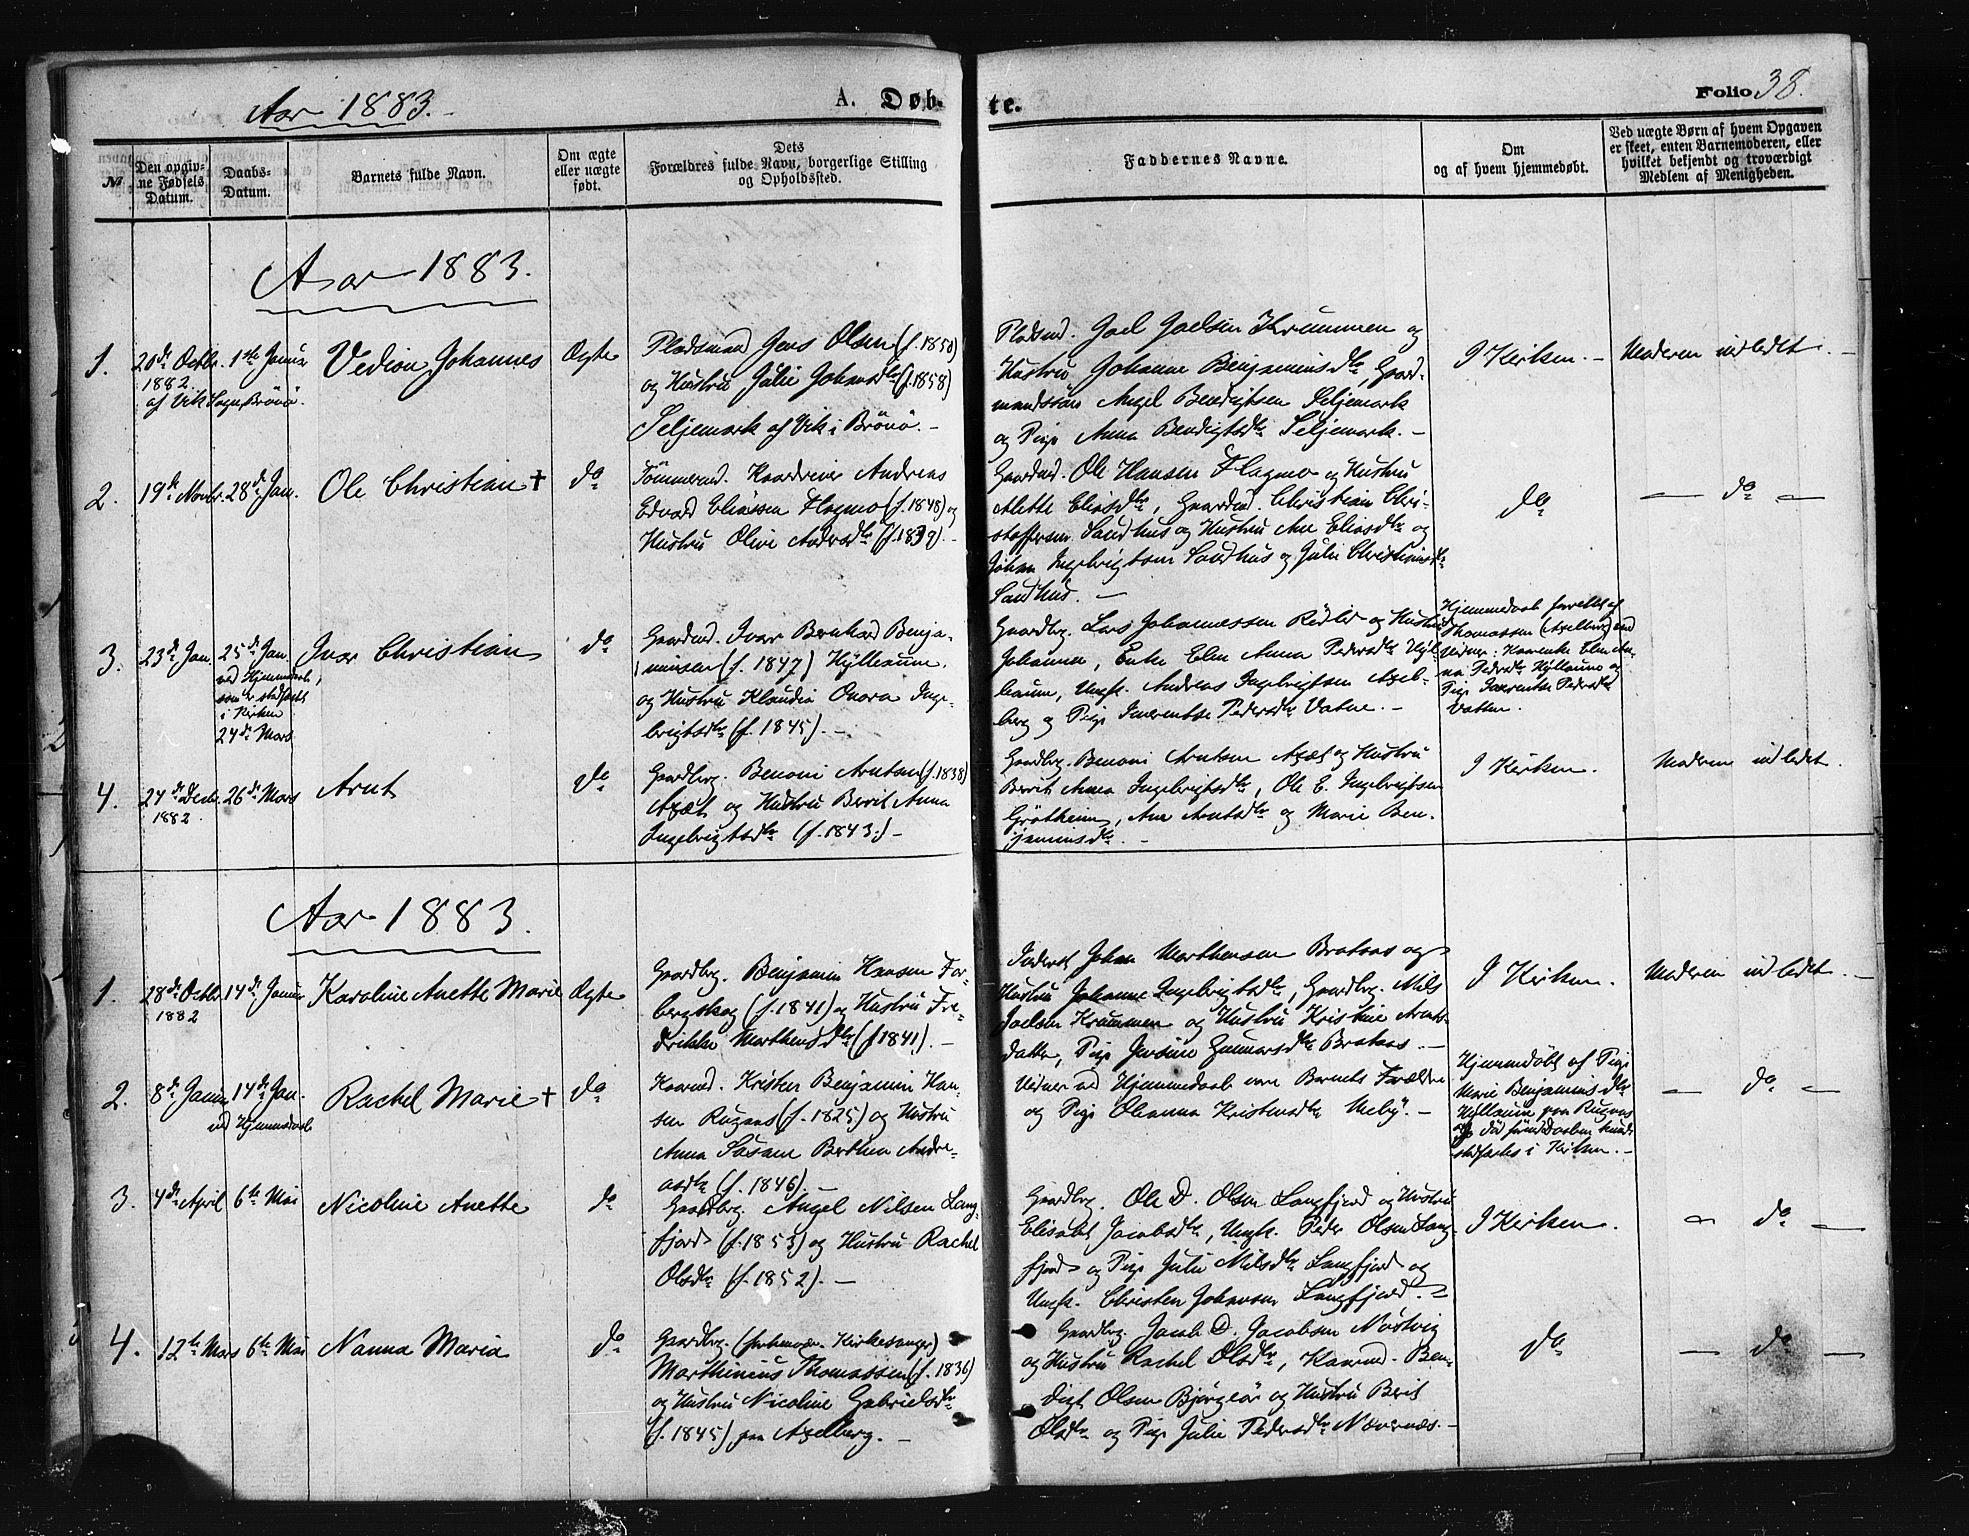 Aar 1883.
A. Døb-
te.
Folio 38.
№
Den opgiv-
ne Fødsels
Datum.
Daabs-
Datum.
Barnets fulde Navn.
Om ægte
eller uægte
født.
Dets
Forældres fulde Navn, borgerlige Stilling
og Opholdssted.
Faddernes Navne.
Om
og af hvem hjemmedøbt.
Ved uægte Børn af hvem Opgaven
er skeet, enten Barnemoderen, eller
hvilket bekjendt og troværdigt
Medlem af Menigheden.
Aar 1883.
1.
20de Octbr.
1882.
af Vik Sogn, Brönö.
1ste Januar
Johannes
Ægte
Pladsmand Jens Olsen (f. 1850)
og Hustru Julie Johansdtr (f. 1858)
Seljemark af Vik i Brönö. -
Pladsmd. Joel Joelsen Krummen og
Hustru Johanne Benjaminsdtr, Gaard-
mandssön Angel Bendigtsen Seljemark
og Pige Anna Bendigtsdtr Seljemark. -
I Kirken. -
Moderen indledet. -
2.
19de Novbr.
28de Jan.
Ole Christian †
do
Tömmermd. Kaardreier Andreas
Edvard Eliassen Flagmo (f. 1848) og
Hustru Olive Andersdtr (f. 1839). -
Gaardmd. Ole Hansen Flagmo og Hustru
Alette Eliasdtr, Gaardmd. Christian Chri-
stoffersen Sandhus og Hustru Ane Eliasdtr og
Johan Ingebrigtsen Sandhus og Julie Christiansdtr
Sandhus. -
do
— do —
3.
23de Jan.
25de Jan.
ved Hjemmedaab,
som er stadfæstet
i Kirken
24de Mars
Ivar Christian
do
Gaardmd. Ivar Bernhard Benja-
minsen (f. 1847) Hylleaune.
og Hustru Klaudia Onora Inge-
brigtsdtr (f. 1845). -
Gaardbrg. Lars Johannessen Rödli og Hustru
Johanna, Enke Elen Anna Pedersdtr Hyl-
leaune, Ungk. Andreas Ingebrigtsen Axel-
berg og Pige Pedersdtr Vatne. -
Hjemmedaab forrettet af
Thomassen (Axelberg) ved
Vidner: Elen An-
na Pedersdtr Hylleaune og
Pige Pedersdtr
Vatten.
4.
24de Decbr.
1882.
26de Mars
Arnt
do
Gaardbrg. Benoni Arntsen (f. 1838)
Axæt og Hustru Berit Anna
Ingebrigtsdtr (f. 1843.) -
Gaardbrg. Benoni Arntsen Axæt og Hustru
Berit Anna Ingebrigtsdtr, Ole E. Ingebrigtsen
Grötheim, Ane Arntsdtr og Marie Ben-
jaminsdtr. -
I Kirken.
Moderen indledet.
Aar 1883.
1.
28de Octbr.
1882
14de Januar
Karoline Anette Marie
Ægte
Gaardbrg. Benjamin Hansen For-
bergskog (f. 1841) og Hustru Fre-
drikke Marthensdtr (f. 1841). -
Inderst Johan Marthensen Brataas og
Hustru Johanne Ingebrigtsdtr, Gaardbrg. Nils
Joelsen Krummen og Hustru Kristine Arnts-
datter, Pige Gunnarsdtr Brataas. -
I Kirken.
Moderen indledet. -
2.
8de Januar
14de Jan.
ved Hjemmedaab
Rachel Marie †
do
Kaarmd. Kristen Benjamin Han-
sen Rugaas (f. 1825) og Hustru
Anna Susane Berthea Andre-
asdtr (f. 1846). -
Vidner ved Hjemmedaab vare Barnets Forældre
og Pige Oleanna Kristensdtr Meby. -
Hjemmedöbt af Pige
Marie Benjaminsdtr
Hylleaune paa Rugaas
og död förend Daaben kunde
stadfæstes i Kirken. -
— do —
3.
4de April
6te Mai
Nicoline Anette
do
Gaardbrg. Angel Nilsen Lang-
fjord (f. 1853) og Hustru Rachel
Olsdtr (f. 1852). -
Gaardbrg. Ole D. Olsen Langfjord og Hustru
Elisabet Jacobsdtr, Ungk. Peder Olsen Lang-
fjord og Pige Julie Nilsdtr Langfjord og
Ungk. Christen Johansen Langfjord. -
I Kirken.
— do —
4.
12te Mars
6te Mai
Nanna Maria
do
Gaardbrg. (forhenvær. Kirkesanger)
Marthinius Thomassen (f. 1836)
og Hustru Nicoline Gabrielsdtr
(f. 1845) paa Axelberg. -
Gaardbrg. Jacob D. Jacobsen Nöstvig
og Hustru Rachel Olsdtr, Kaarmd. Ben-
digt Olsen Bjørglör og Hustru Berit
Olsdtr og Pige Julie Pedersdtr Nævernæs. -
do
— do —